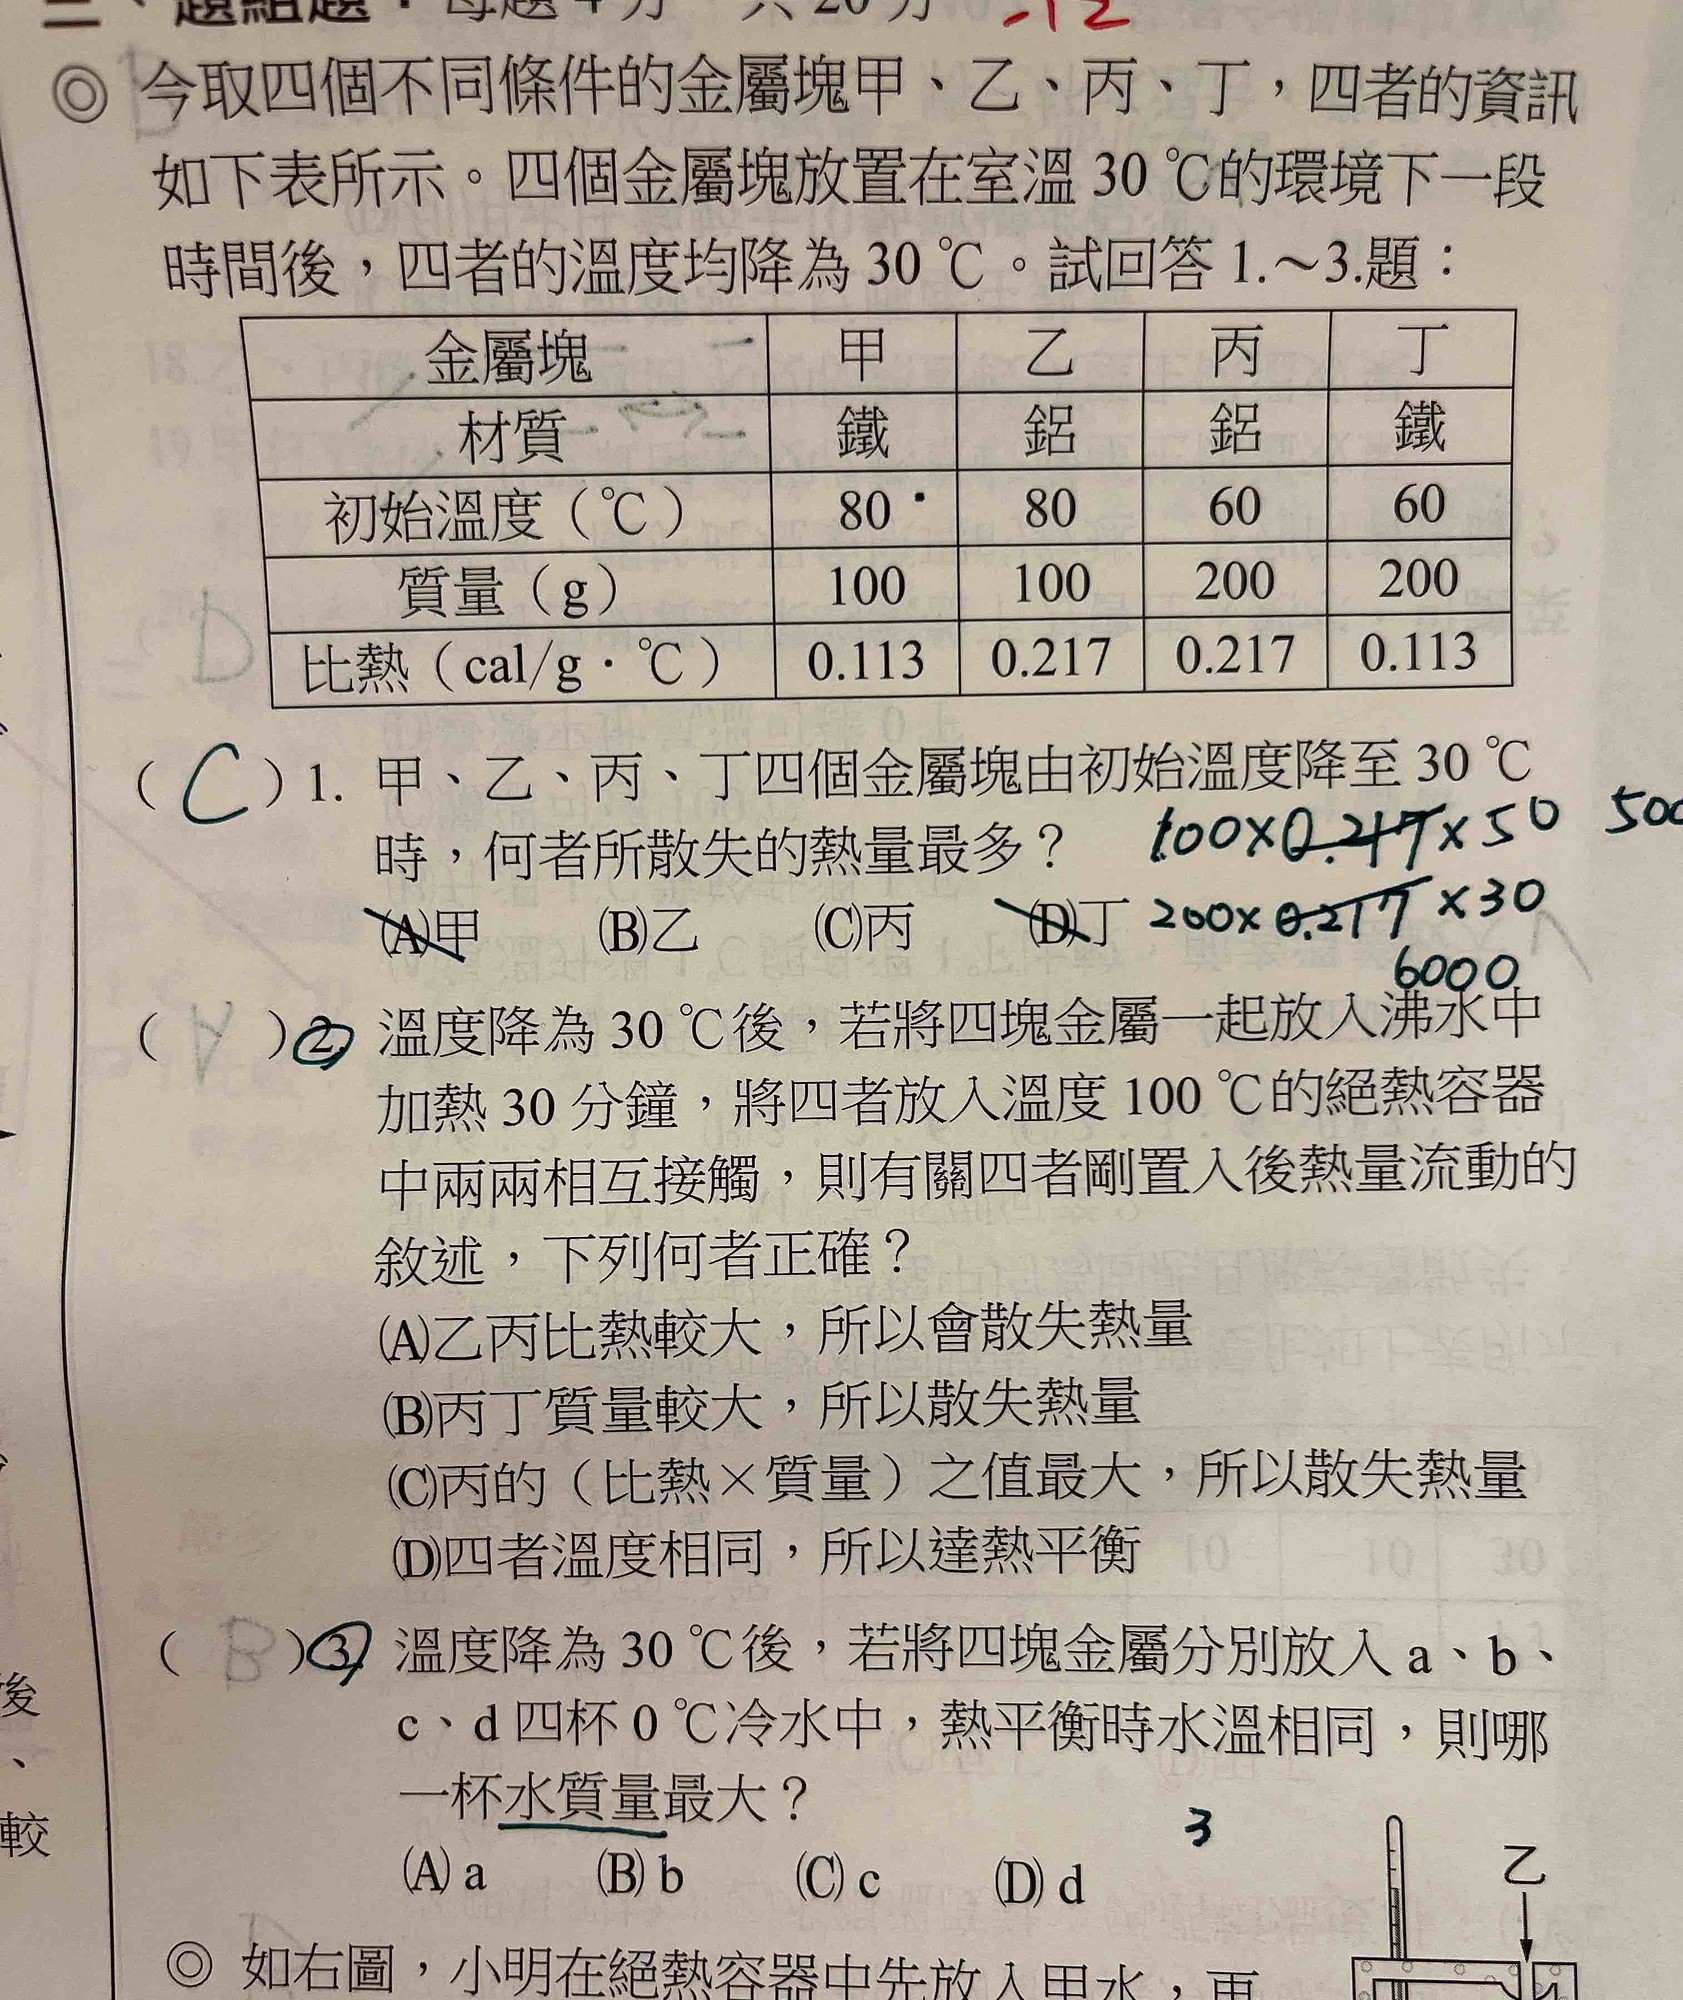 二、題組題：每題 4 分，共 20 分 -12
◎ 今取四個不同條件的金屬塊甲、乙、丙、丁，四者的資訊
如下表所示。四個金屬塊放置在室溫 30 ℃的環境下一段
時間後，四者的溫度均降為 30 ℃。試回答 1.～3.題：
金屬塊 甲 乙 丙 丁
材質 鐵 鋁 鋁 鐵
初始溫度（℃） 80 80 60 60
質量（g） 100 100 200 200
比熱（cal/g．℃） 0.113 0.217 0.217 0.113
D
( C ) 1. 甲、乙、丙、丁四個金屬塊由初始溫度降至 30 ℃
時，何者所散失的熱量最多？ 100×0.217×50 500
(A)甲 (B)乙 (C)丙 (D)丁 200×0.217×30
6000
( A ) 2. 溫度降為 30 ℃後，若將四塊金屬一起放入沸水中
加熱 30 分鐘，將四者放入溫度 100 ℃的絕熱容器
中兩兩相互接觸，則有關四者剛置入後熱量流動的
敘述，下列何者正確？
(A)乙丙比熱較大，所以會散失熱量
(B)丙丁質量較大，所以散失熱量
(C)丙的（比熱×質量）之值最大，所以散失熱量
(D)四者溫度相同，所以達熱平衡
( B ) 3. 溫度降為 30 ℃後，若將四塊金屬分別放入 a、b、
c、d 四杯 0 ℃冷水中，熱平衡時水溫相同，則哪
一杯水質量最大？
3
(A) a (B) b (C) c (D) d
乙
◎ 如右圖，小明在絕熱容器中先放入甲水，再
後
、
較